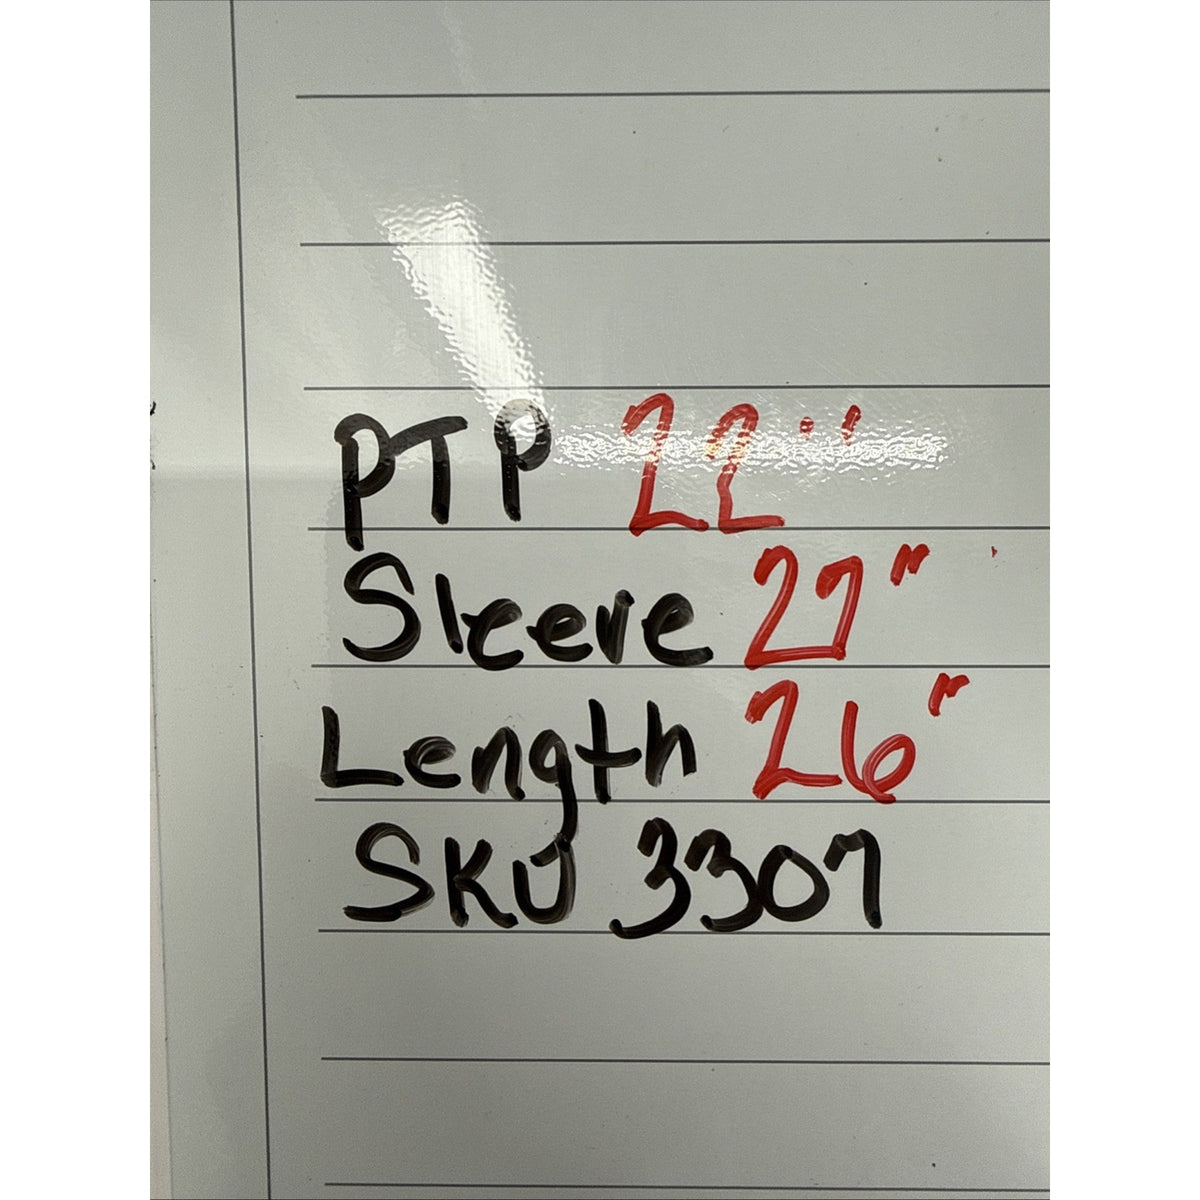 PTP 22"
Sleeve 27"
Length 26"
SKU 3307